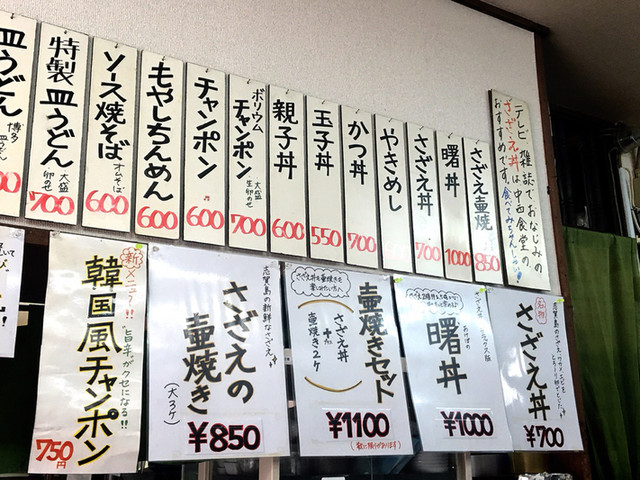 テレビ 雑誌でおなじみの
さざえ丼は中西食堂の
おすすめです。食べてみちんしゃい
さざえ壷焼
850
曙丼
1000
さざえ丼
700
やきめし
かつ丼
700
玉子丼
550
親子丼
600
ボリウム
チャンポン
大盛
生卵のせ
700
チャンポン
600
もやしちゃんめん
600
ソース焼そば
オムそば
600
特製皿うどん
大盛
卵のせ
700
皿うどん
博多
皿うどん
名物
さざえ丼
¥700
曙丼
あけぼの
¥1000
さざえ丼も壷焼きも
楽しみたい方へ
壷焼きセット
さざえ丼
+
壷焼き2ケ
¥1100
(数に限りがあります)
志賀島の新鮮なさざえ
さざえの
壷焼き
(大3ケ)
¥850
新メニュー!!
韓国風チャンポン
"旨辛"がクセになる!!
750円